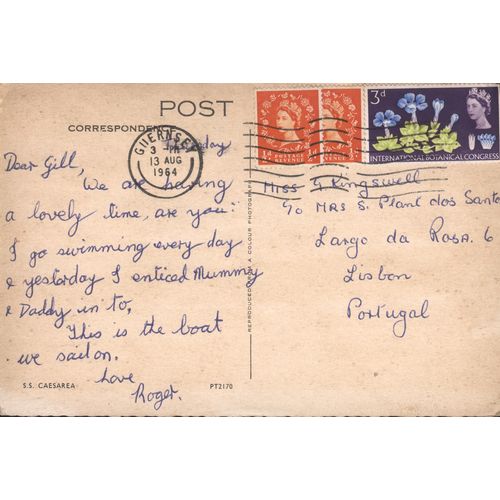 POST
CORRESPONDENCE
GUERNSEY
3 - PM
13 AUG
1964
Dear Gill,
We are having
a lovely time, are you?
I go swimming every day
& yesterday I enticed Mummy
& Daddy in to,
This is the boat
we sail on.
Love
Roger.
S.S. CAESAREA
PT2170
REPRODUCED FROM A COLOUR PHOTOGRAPH
½d POSTAGE REVENUE
½d REVENUE
3d
INTERNATIONAL BOTANICAL CONGRESS
Miss G Kingswell
c/o MRS S. Plant dos Santo
Largo da Rosa. 6
Lisbon
Portugal